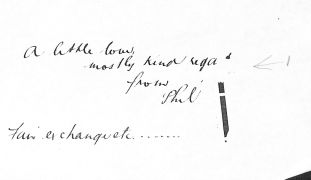 a little love,
mostly kind regds
from
Phil
Fair exchange etc.......